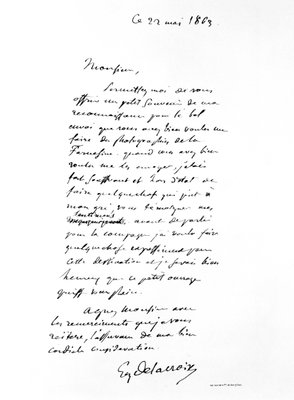 Ce 22 mai 1863.
Monsieur,
Permettez moi de vous
offrir un petit souvenir de ma
reconnaissance pour le bel
envoi que vous avez bien voulu me
faire des photographies de la
Farnesine. quand vous avez bien
voulu me les envoyer j'étais
fort souffrant et hors d'état de
faire quelque chose qui put à
mon gré vous témoigner mes
sentiments avant de partir
pour la campagne j'ai voulu faire
quelque chose expressément pour
cette destination et je serais bien
heureux que ce petit ouvrage
put vous plaire.
Agréez Monsieur avec
les remerciements que je vous
réitère, l'assurance de ma bien
cordiale considération.
Eug Delacroix